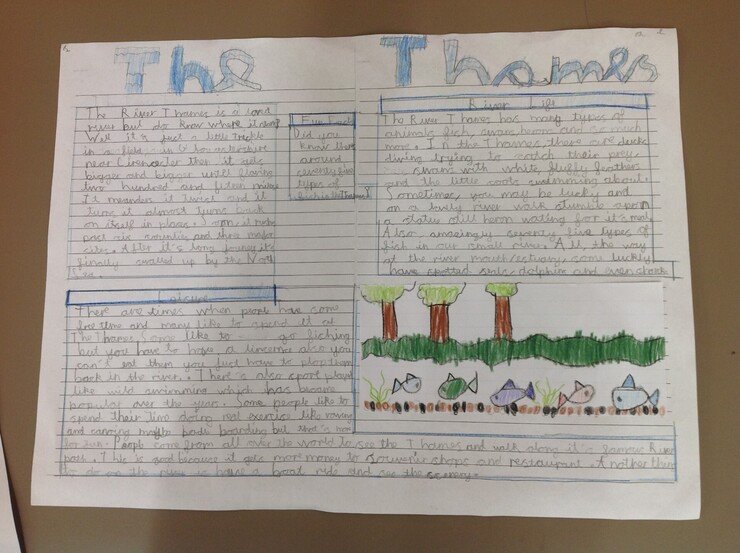 The Thames
The River Thames is a
river but do know where it
Well it is just a little trickle
in a field, in Gloucestershire
near Cirencester then it gets
bigger and bigger until flowing
two hundred and fifteen miles
It meanders it twist and it
turns it almost turns back
on itself in places. It
past six counties and three major
After it's long journey it's
finally up by the North
Sea.
Fun Fact
Did you
know there
around
seventy five
types of
fish in the Thames
River Life
The River Thames has many types of
animals fish, swans, herons and so much
more. In the Thames, there are ducks
diving trying to catch their prey
swans with white, fluffy feathers
and the little coots swimming about.
Sometimes you may be lucky and
on a lovly river walk stumble apon
a statue still heron waiting for it's meal
Also amazingly seventy five types of
fish in our small river. All the way
at the river mouth/estuary, some luckily
have spotted seals, dolphins and even sharks
Leisure
There are times when people have some
free time and many like to spend it at
The Thames. Some like to go fishing
but you have to have a also you
can't eat them you just have to plop them
back in the river. There's also sport played
like wild swimming which has become
popular over the year. Some people like to
spend their time doing real exercise like rowing
and canoeing boarding but that's more
for fun. People come from all over the world to see the Thames and walk along it's famous River
pass. This is good because it gets more money to souvenir shops and restaurant. Another thing
to do on the river is have a boat ride and see the scenery.